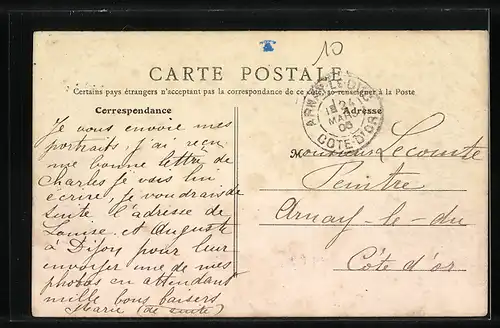 10
CARTE POSTALE
Certains pays étrangers n'acceptant pas la correspondance de ce côté se renseigner à la Poste
Correspondance
Adresse
ARNAY-LE-DUC
24
MARS
06
COTE-D'OR
Je vous envoie mes
portraits j'ai reçu
une bonne lettre de
Charles je vais lui
écrire, je voudrais de
suite l'adresse de
Louise et Auguste
à Dijon pour leur
envoyer une de mes
photos en attendant
mille bons baisers
Marie (de suite)
Monsieur Lecomte
Peintre
Arnay-le-du
Côte d'or